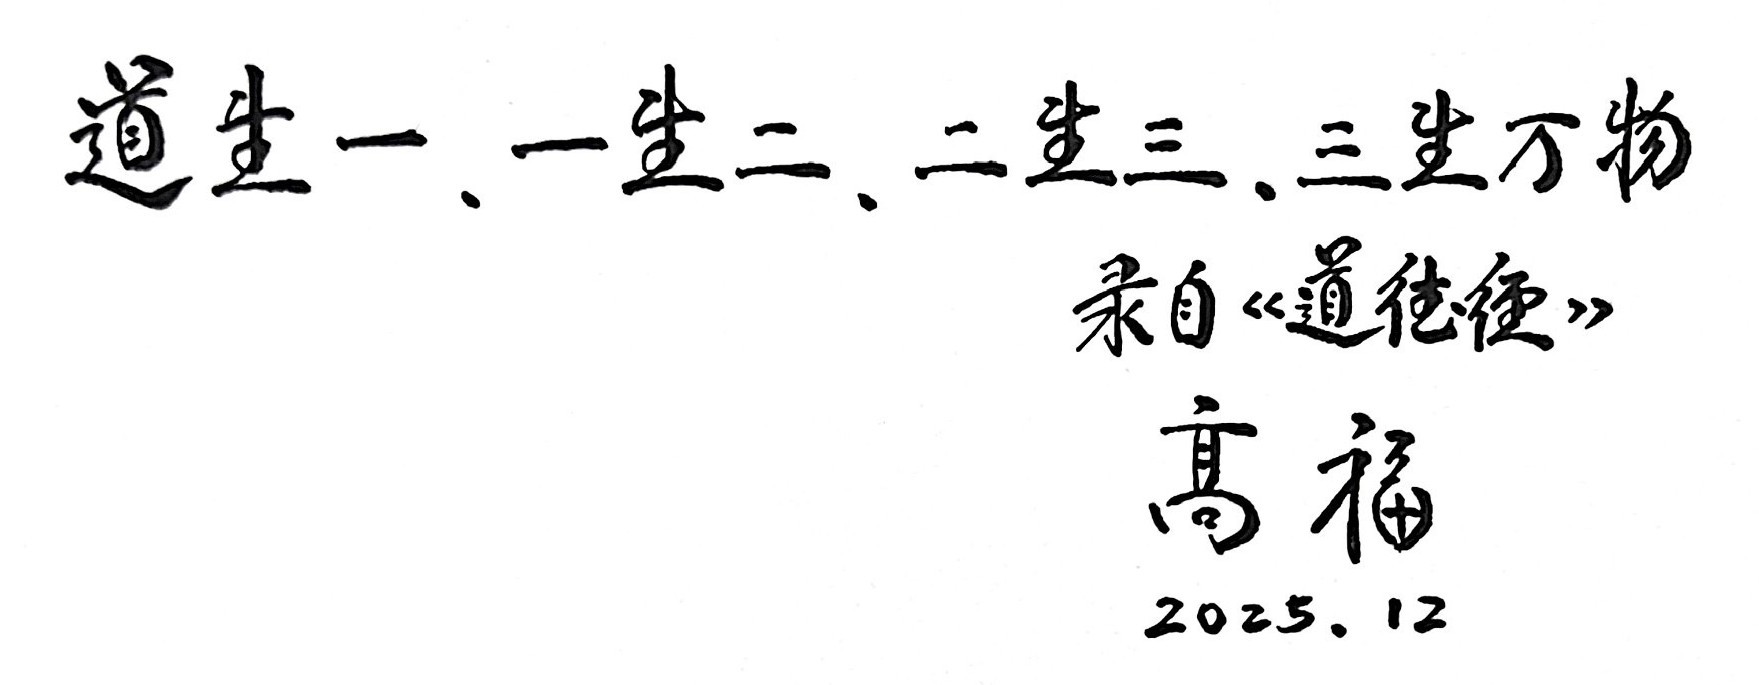 道生一、一生二、二生三、三生万物
录自《道德经》
高福
2025.12